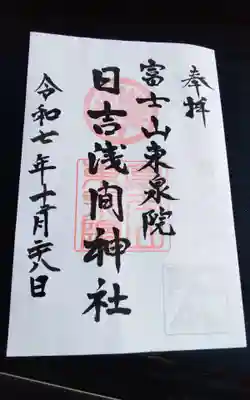 奉拝
富士山東泉院
日吉浅間神社
令和七年十二月廿八日